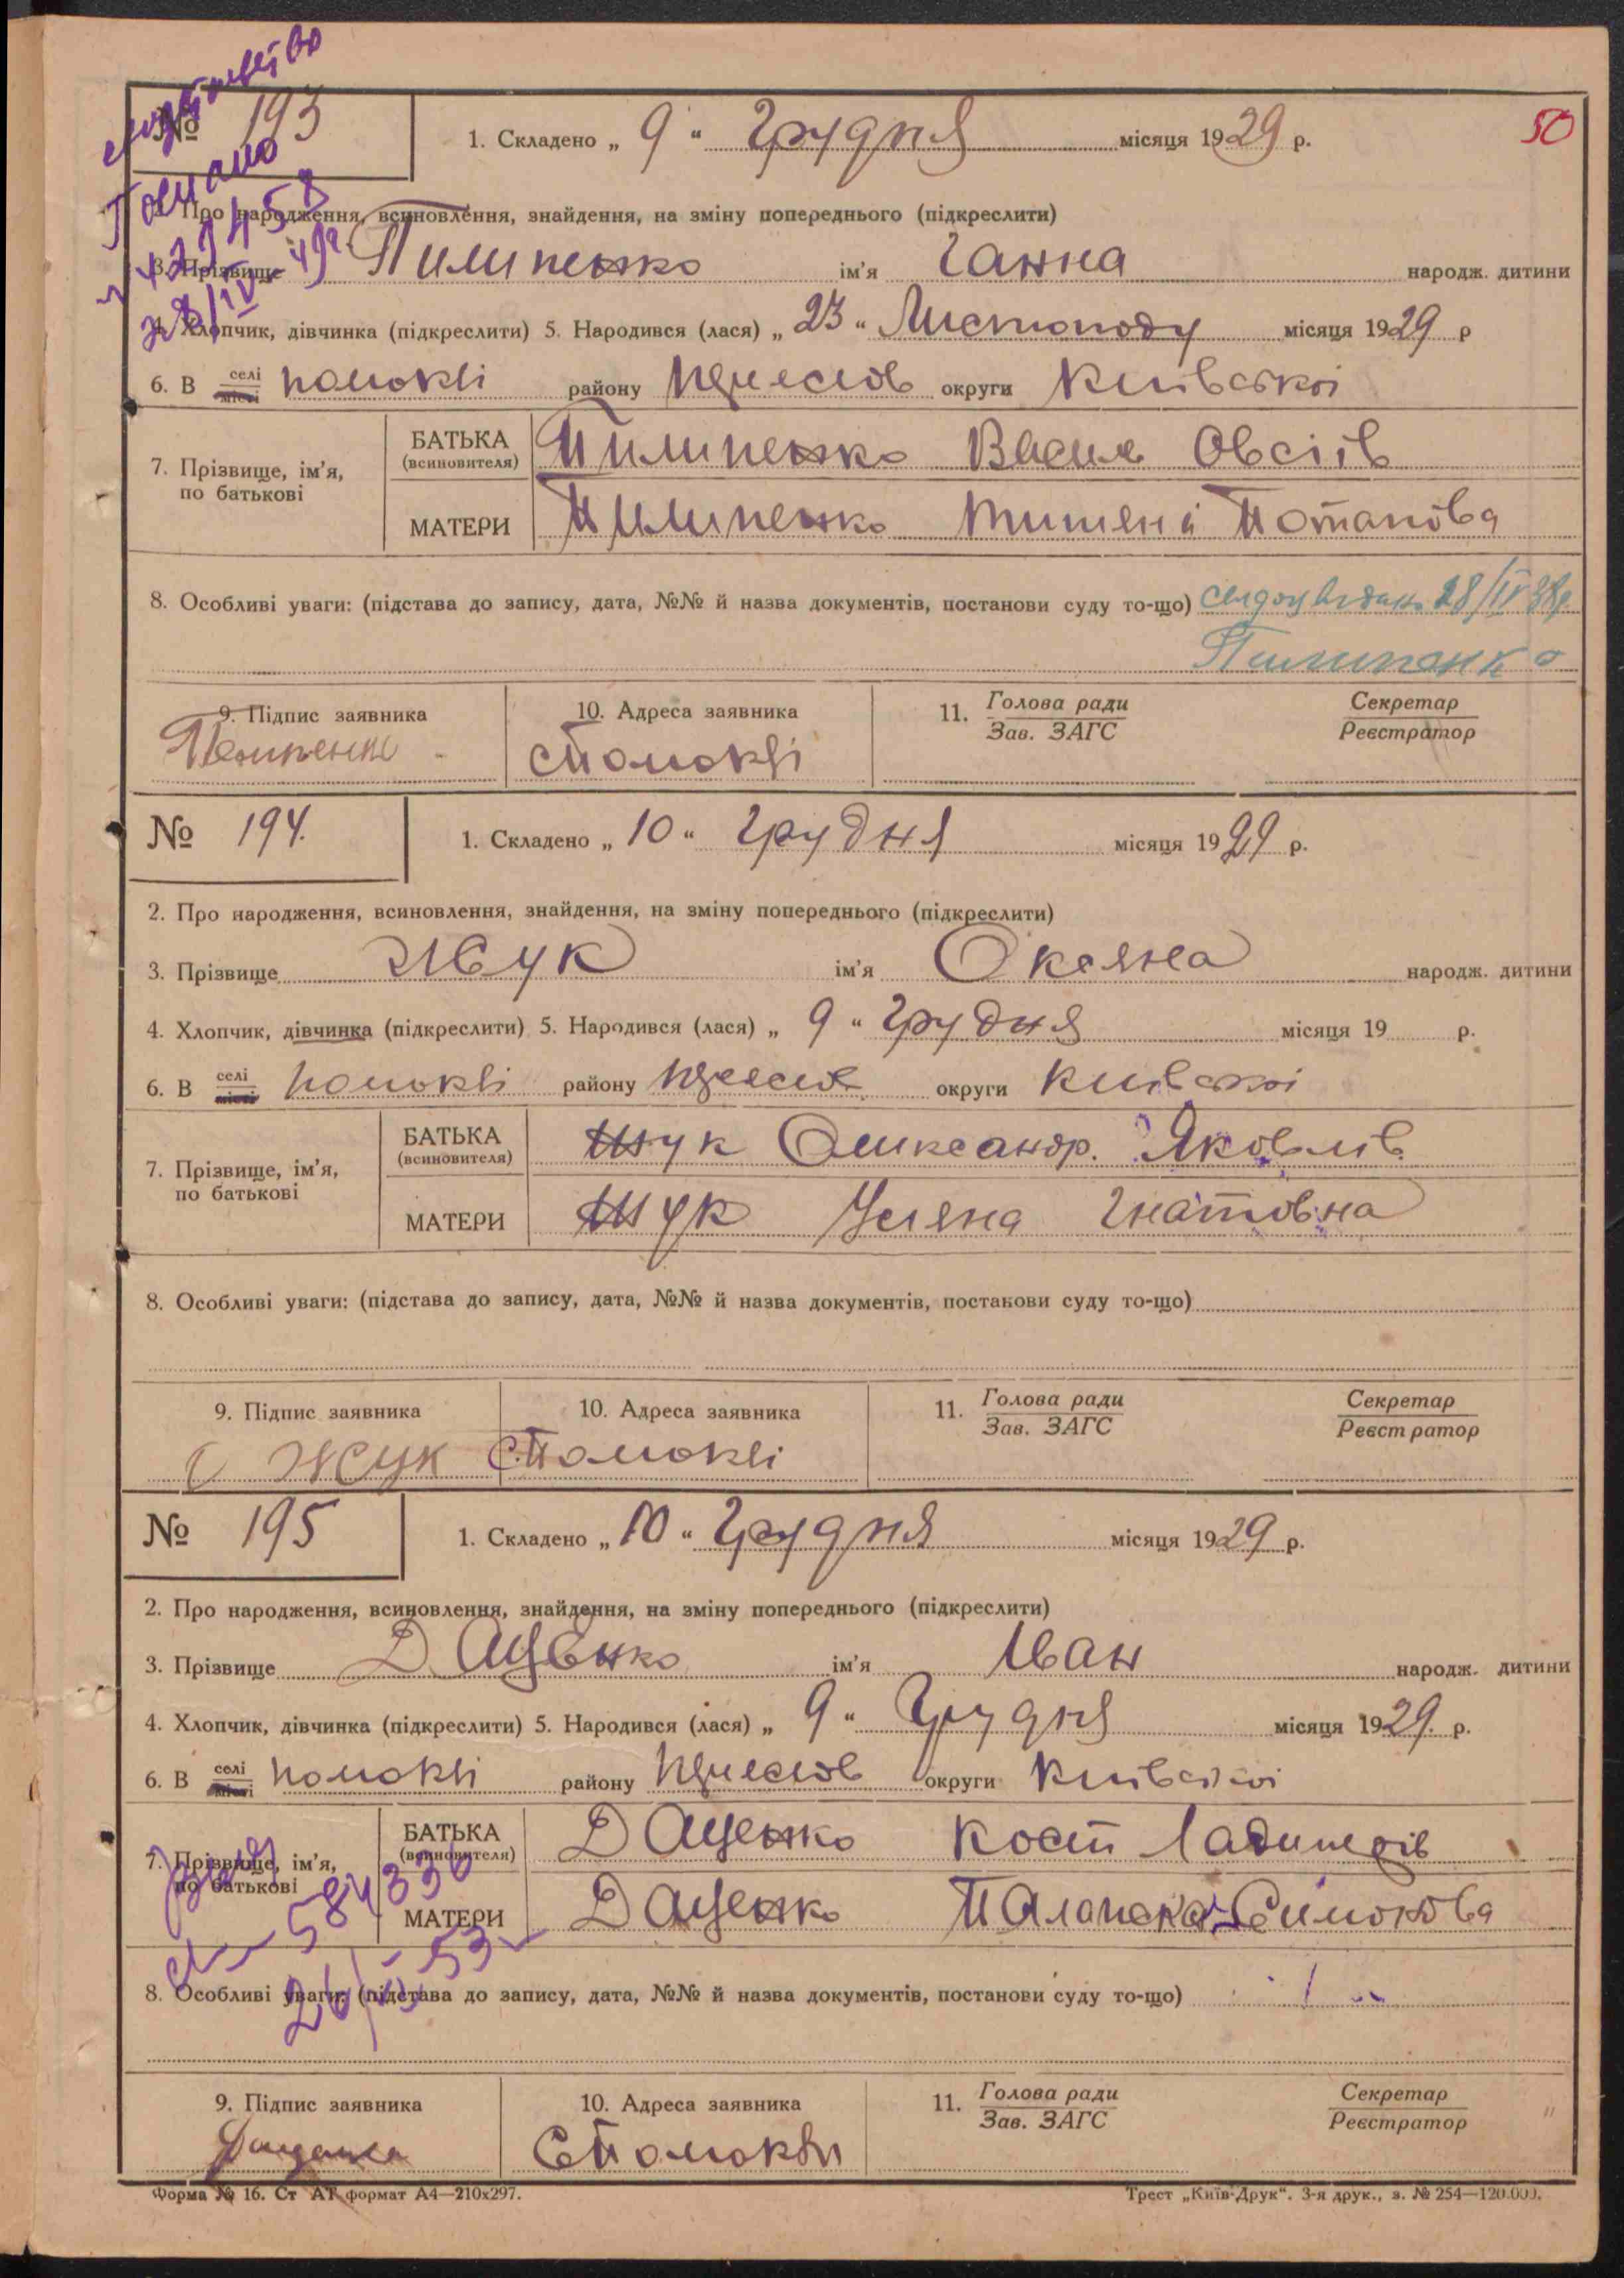 50
№ 193
1. Складено „ 9 “ Грудня місяця 1929 р.
2. Про народження, всиновлення, знайдення, на зміну попереднього (підкреслити)
3. Прізвище Пилипенко ім’я Ганна народж. дитини
4. Хлопчик, дівчинка (підкреслити) 5. Народився (лася) „ 23 “ Листопаду місяця 1929 р
6. В селі помоклі району округи Київської
7. Прізвище, ім’я, по батькові
БАТЬКА (всиновителя) Пилипенко Василь Овсіїв
МАТЕРИ Пилипенко Потапова
8. Особливі уваги: (підстава до запису, дата, №№ й назва документів, постанови суду то-що) 28/IV
Пилипенко
9. Підпис заявника
10. Адреса заявника
с Помоклі
11. Голова ради
Зав. ЗАГС
Секретар
Реєстратор
№ 194.
1. Складено „ 10 “ Грудня місяця 1929 р.
2. Про народження, всиновлення, знайдення, на зміну попереднього (підкреслити)
3. Прізвище Жук ім’я Оксяна народж. дитини
4. Хлопчик, дівчинка (підкреслити) 5. Народився (лася) „ 9 “ Грудня місяця 19 р.
6. В селі помоклі району округи Київської
7. Прізвище, ім’я, по батькові
БАТЬКА (всиновителя) Жук Олександр. Яковлів
МАТЕРИ Жук Уляна Гнатовна
8. Особливі уваги: (підстава до запису, дата, №№ й назва документів, постанови суду то-що)
9. Підпис заявника
Жук
10. Адреса заявника
с. Помоклі
11. Голова ради
Зав. ЗАГС
Секретар
Реєстратор
№ 195
1. Складено „ 10 “ Грудня місяця 1929 р.
2. Про народження, всиновлення, знайдення, на зміну попереднього (підкреслити)
3. Прізвище Даценко ім’я Іван народж. дитини
4. Хлопчик, дівчинка (підкреслити) 5. Народився (лася) „ 9 “ Грудня місяця 1929. р.
6. В селі помоклі району округи Київської
7. Прізвище, ім’я, по батькові
БАТЬКА (всиновителя) Даценко Кост
МАТЕРИ Даценко Симонова
584336
8. Особливі уваги: (підстава до запису, дата, №№ й назва документів, постанови суду то-що)
9. Підпис заявника
10. Адреса заявника
с Помоклі
11. Голова ради
Зав. ЗАГС
Секретар
Реєстратор
Форма № 16. Ст АТ формат А4—210х297.
Трест „Київ-Друк“. 3-я друк., з. № 254—120.000.